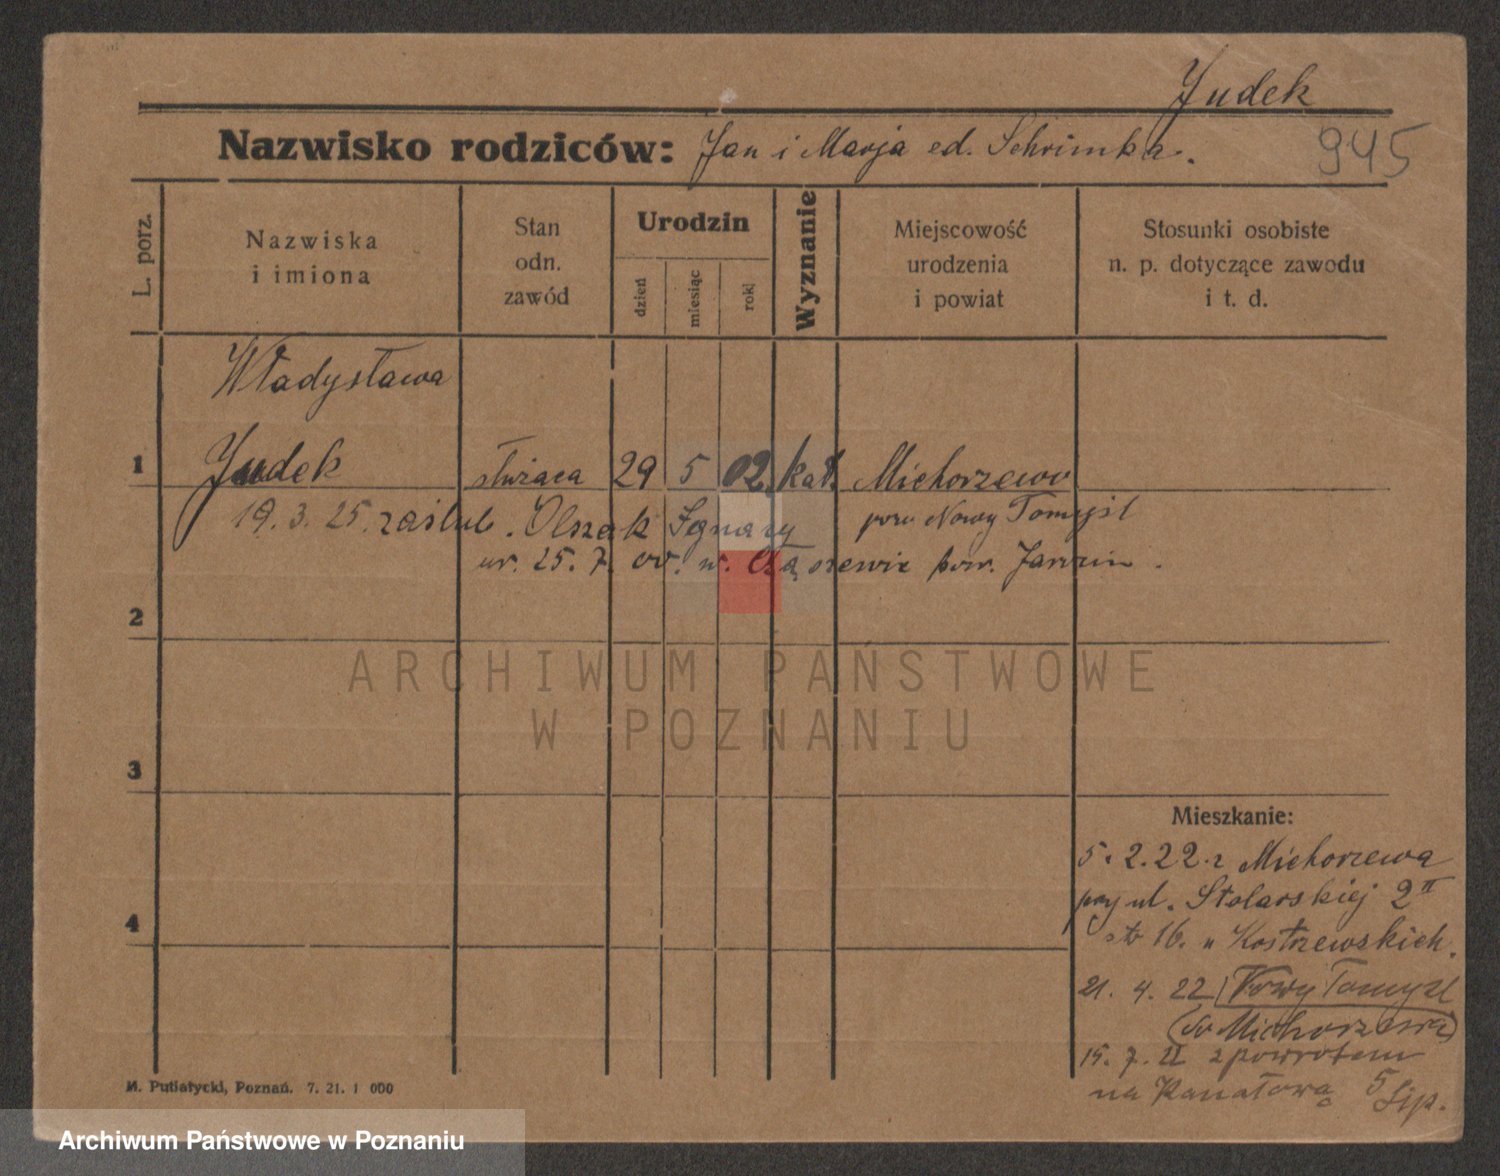 Judek
Nazwisko rodziców: Jan i Marja ed. Schrimka.
945
L. porz.
Nazwiska
i imiona
Stan
odn.
zawód
Urodzin
dzień
miesiąc
rok
Wyznanie
Miejscowość
urodzenia
i powiat
Stosunki osobiste
n. p. dotyczące zawodu
i t. d.
Władysława
1 Judek służąca 29 5 02 kat. Michorzewo
19. 3. 25. zaślub. Olszak Ignacy pow Nowy Tomyśl
ur. 25. 7. 00. w. pow. Jarocin.
2
ARCHIWUM PAŃSTWOWE
W POZNANIU
3
Mieszkanie:
5. 2. 22. z Michorzewa
4
przy ul. Stolarskiej 2 II
str 16. u Kostrzewskich.
21. 4. 22 Nowy Tomyśl
(do Michorzewa)
15. 7. 22 z powrotem
na Kanałową 5
Lip.
M. Putiatycki, Poznań. 7. 21. 1 000
Archiwum Państwowe w Poznaniu